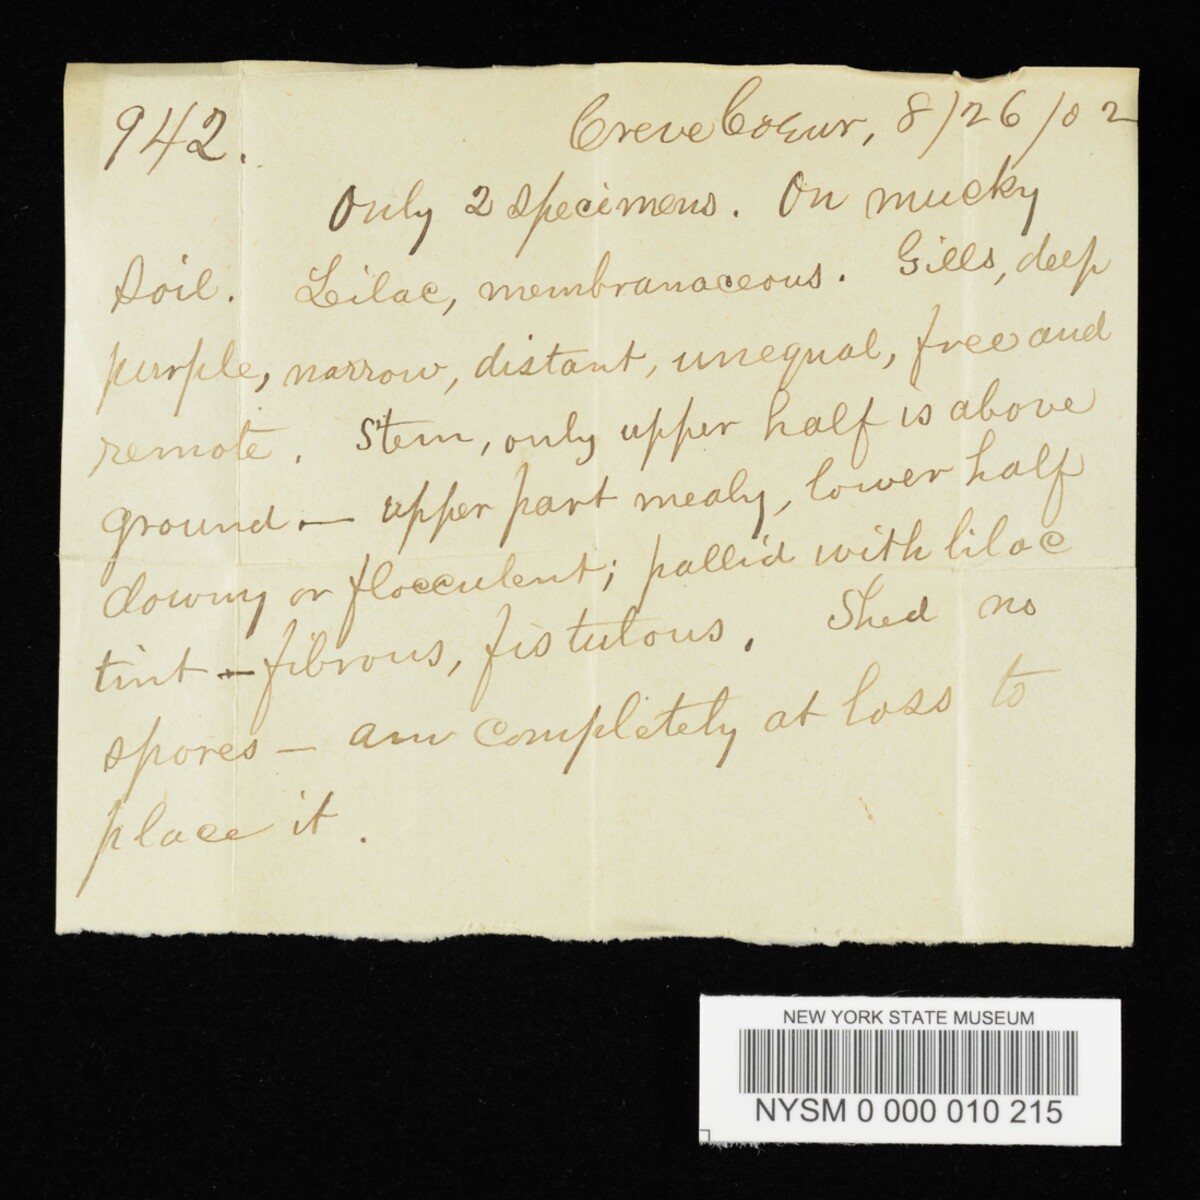 942. Creve Coeur, 8/26/02
Only 2 specimens. On mucky
soil. Lilac, membranaceous. Gills, deep
purple, narrow, distant, unequal, free and
remote. Stem, only upper half is above
ground — upper part mealy, lower half
downy or flocculent; pallid with lilac
tint — fibrous, fistulous. Shed no
spores — am completely at loss to
place it.
NEW YORK STATE MUSEUM
NYSM 0 000 010 215